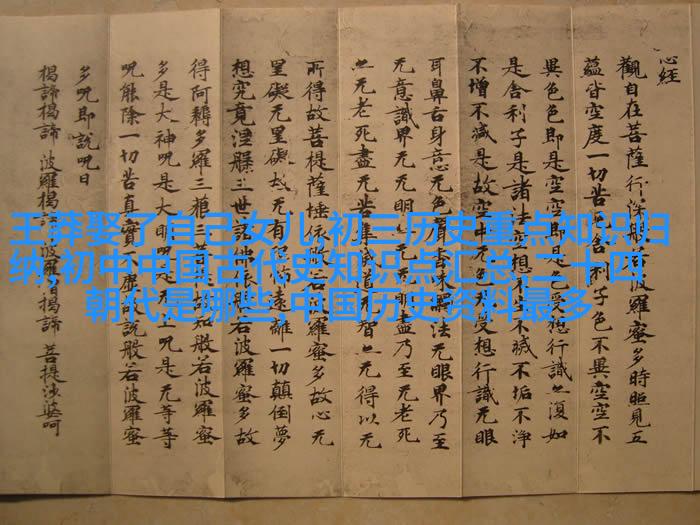 心经
觀自在菩薩行深般若波羅蜜多時照見五
蘊皆空度一切苦厄舍利子色不異空空不
異色色即是空空即是色受想行識亦復如
是舍利子是諸法空想不生不滅不垢不淨
不增不減是故空中无色无受想行識无眼
耳鼻舌身意无色聲香味觸法无眼界乃至
无意識界无无明亦无无明盡乃至无老死
亦无老死盡无苦集滅道无智亦无得以无
所得故菩提薩埵依般若波羅蜜多故心无
罣礙无罣礙故无有恐怖遠離一切顛倒夢
想究竟涅槃三世諸佛依般若波羅蜜多故
得阿耨多羅三藐三菩提故知般若波羅蜜
多是大神呪是大明呪是无上呪是无等等
呪能除一切苦真實不虛故說般若波羅蜜
多呪即說呪曰
揭諦揭諦 波羅揭諦 波羅僧揭諦 菩提莎婆呵
王莽娶了自己女儿,初三历史重点知识归
纳,初中中国古代史知识点汇总,二十四
朝代是哪些,中国历史资料最多